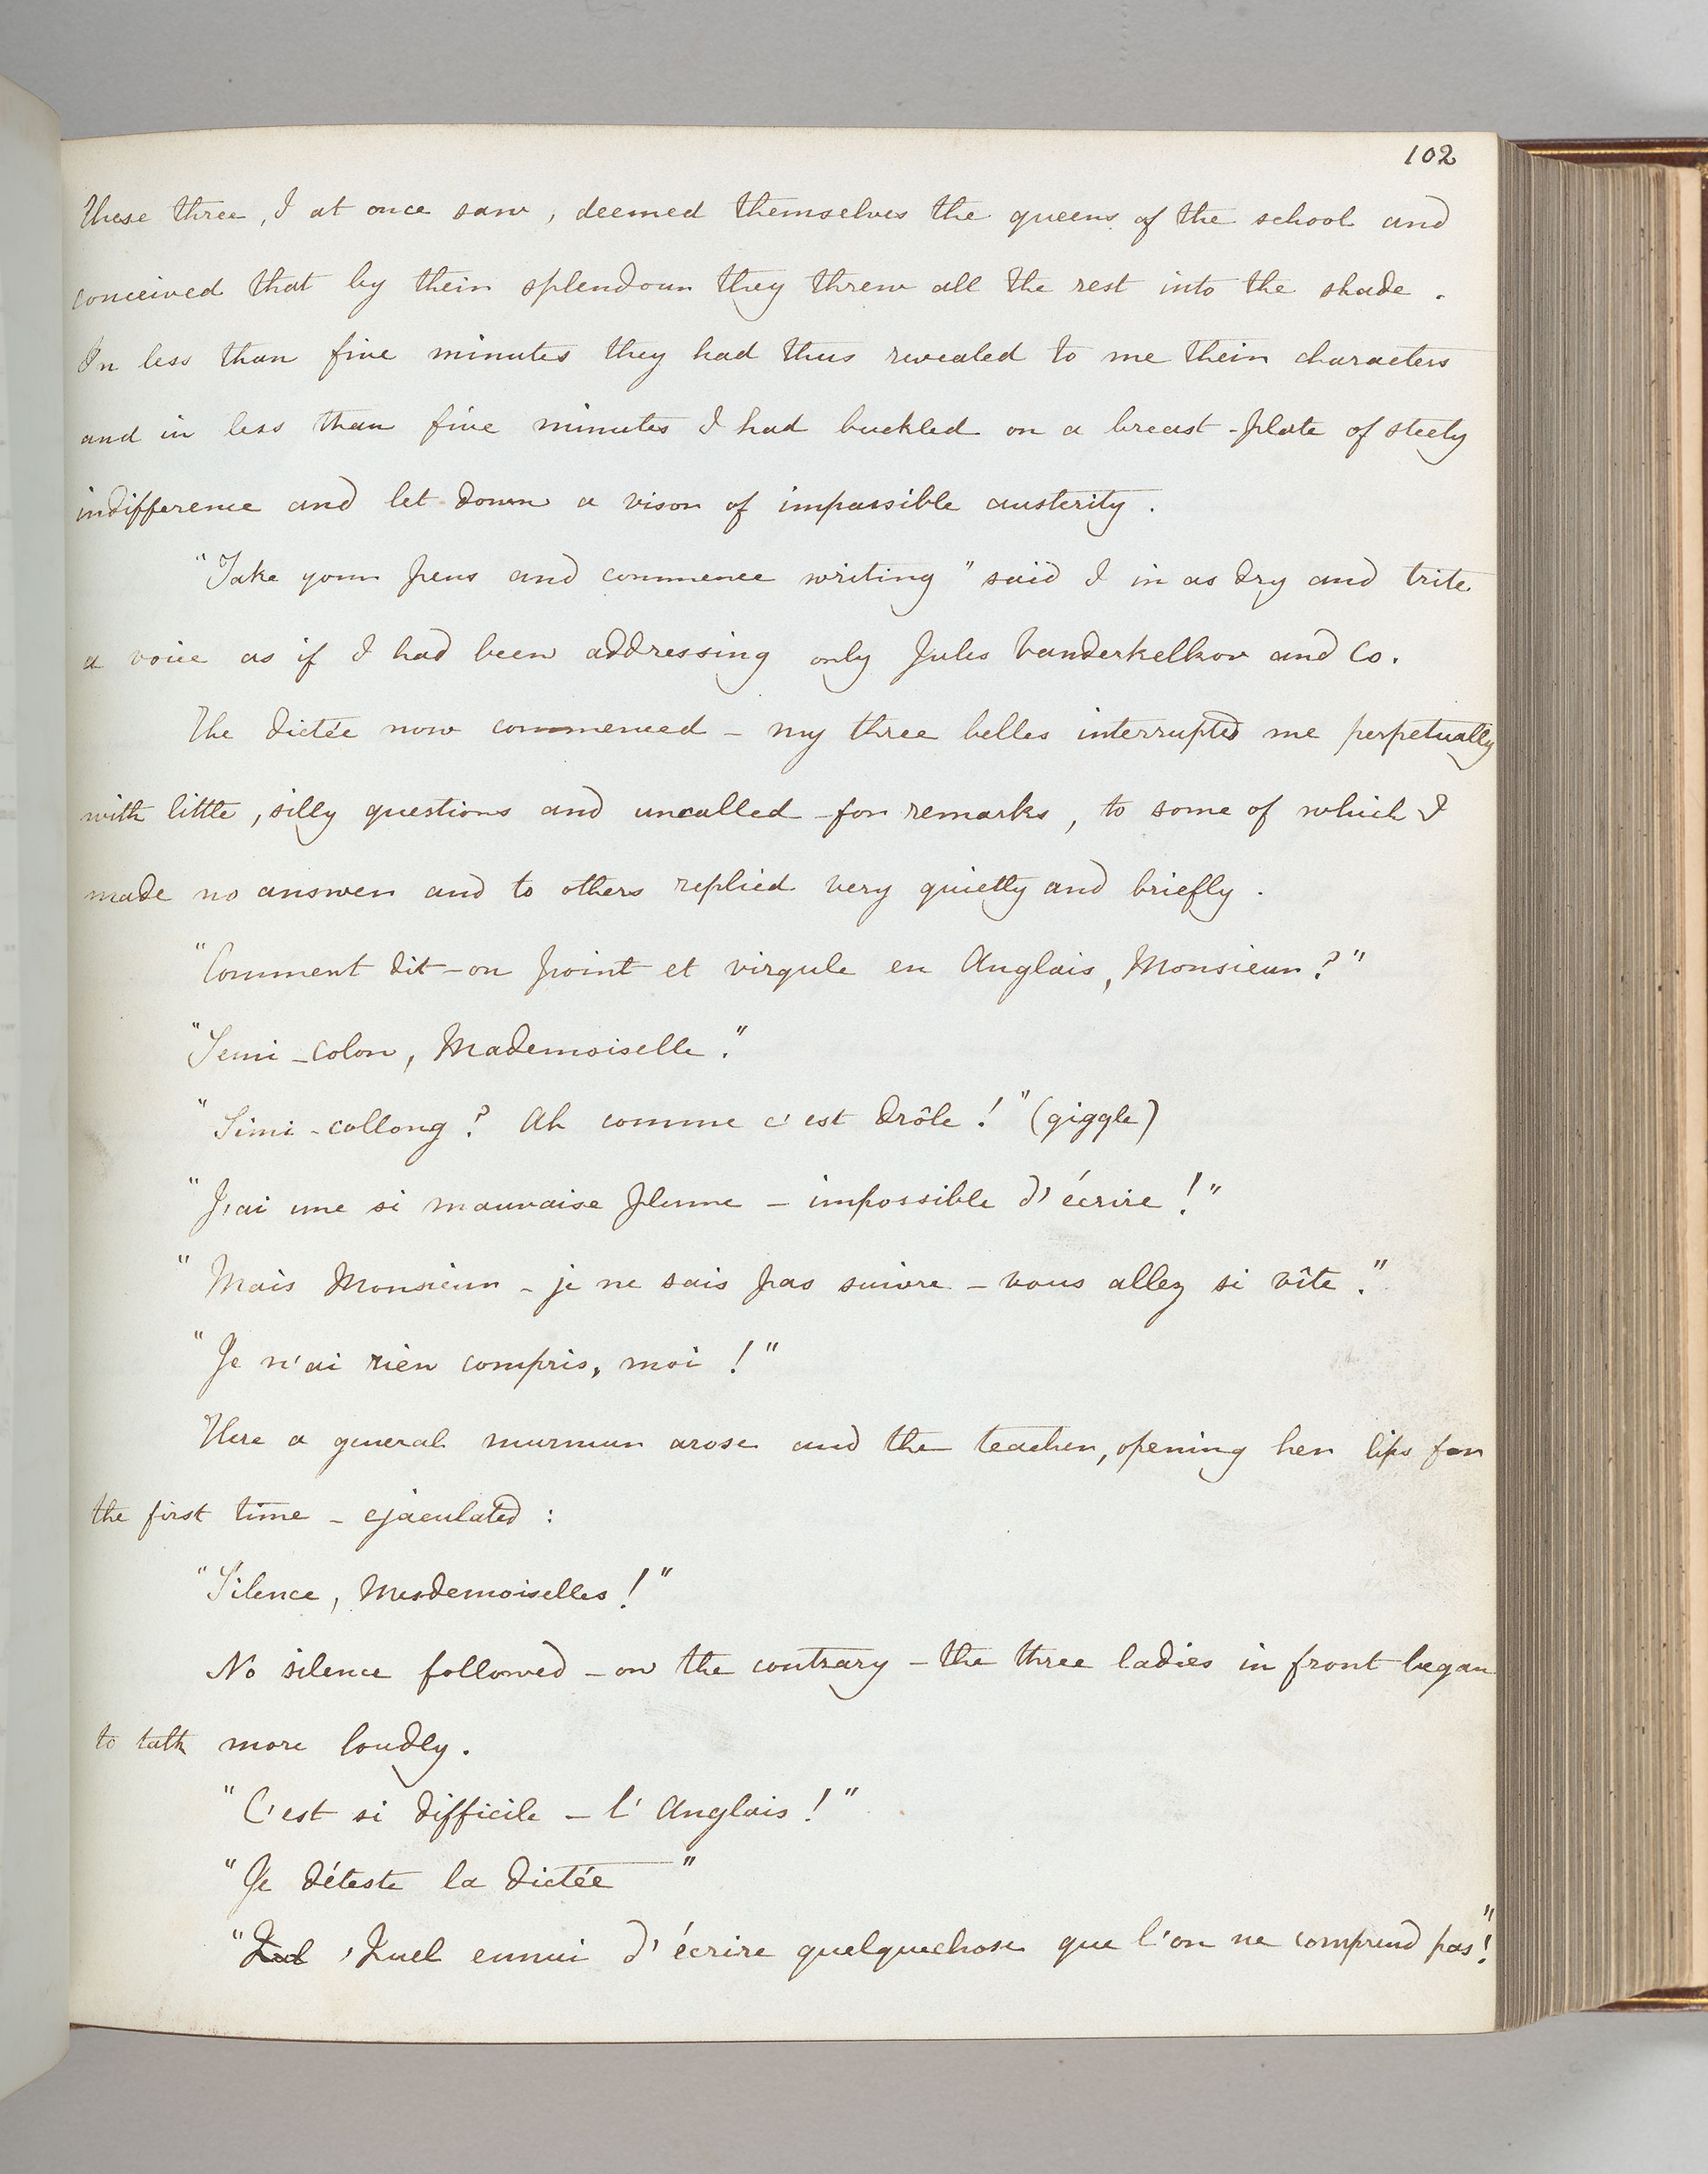 102
These three, I at once saw, deemed themselves the queens of the school and
conceived that by their splendour they threw all the rest into the shade.
In less than five minutes they had thus revealed to me their characters
and in less than five minutes I had buckled on a breast-plate of steely
indifference and let down a visor of impassible austerity.
"Take your pens and commence writing" said I in as dry and trite
a voice as if I had been addressing only Jules Vanderkelkov and Co.
The dictée now commenced - my three belles interrupted me perpetually
with little, silly questions and uncalled-for remarks, to some of which I
made no answer and to others replied very quietly and briefly.
"Comment dit-on point et virgule en Anglais, Monsieur?"
"Semi-colon, Mademoiselle."
"Simi-collong? Ah comme c'est drôle!" (giggle)
"J'ai une si mauvaise plume - impossible d'écrire!"
"Mais Monsieur - je ne sais pas suivre - vous allez si vîte."
"Je n'ai rien compris, moi!"
Here a general murmur arose and the teacher, opening her lips for
the first time - ejaculated:
"Silence, Mesdemoiselles!"
No silence followed - on the contrary - the three ladies in front began
to talk more loudly.
"C'est si difficile - l'Anglais!"
"Je déteste la dictée"
"Quel ennui d'écrire quelquechose que l'on ne comprend pas!"